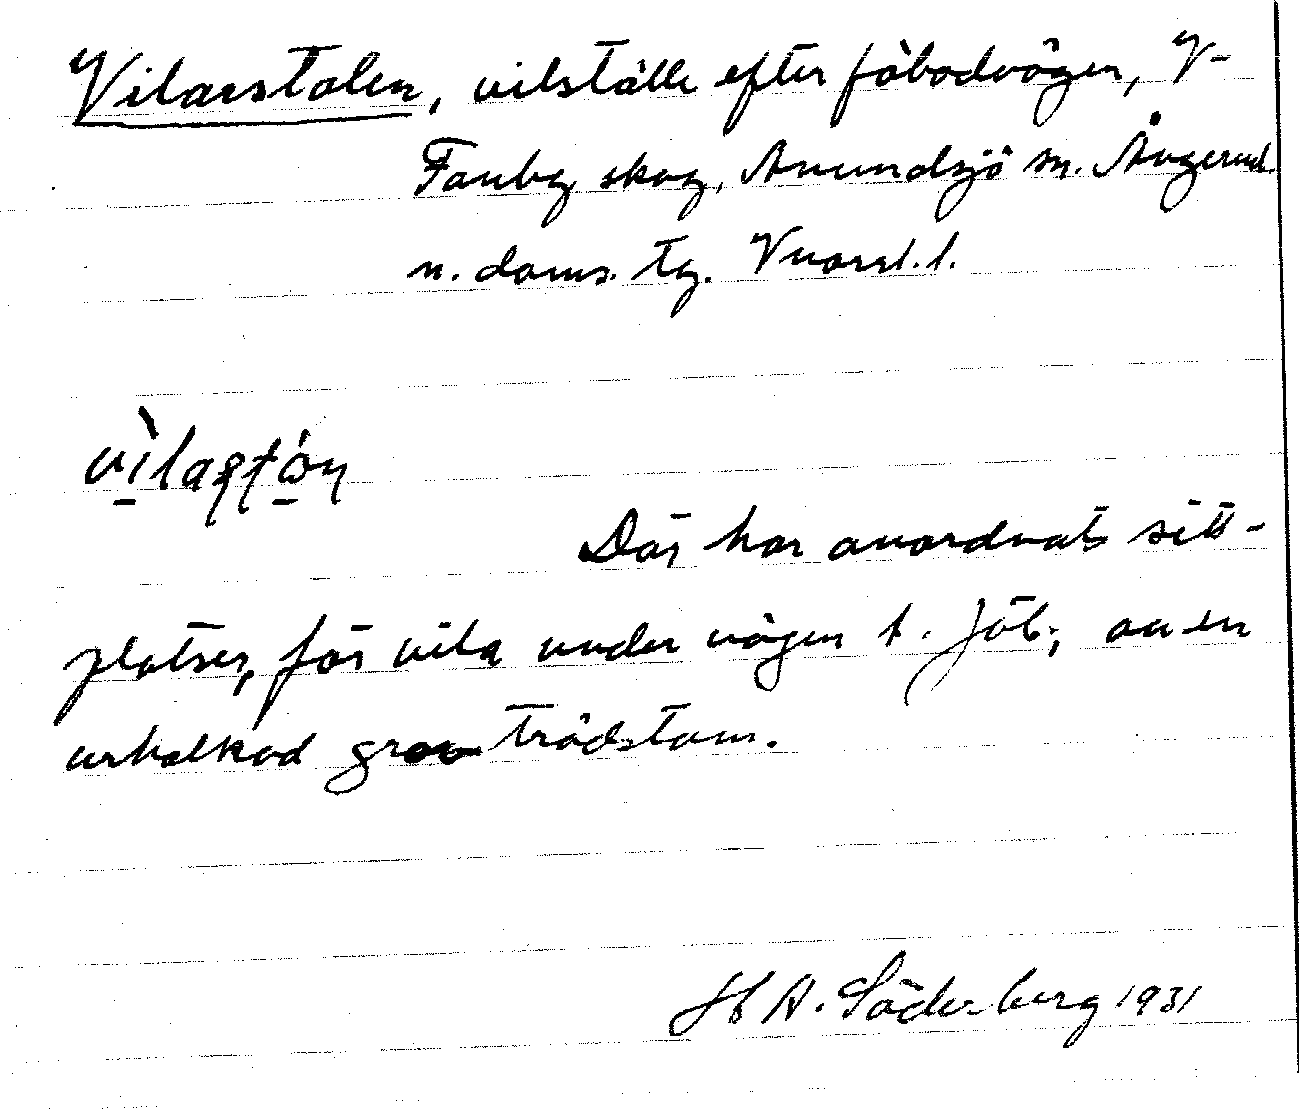 Vilarstolen, vilställe efter fäbodvägen, V-
Tanbg skog, Anundsjö sn. Ångerml.
n. doms. tg. Vnorrl. l.
vilastón
Där har anordnats sitt-
platser, för vila under vägen t. fäb., av en
urholkad grov trädstam.
H A. Söderberg 1931